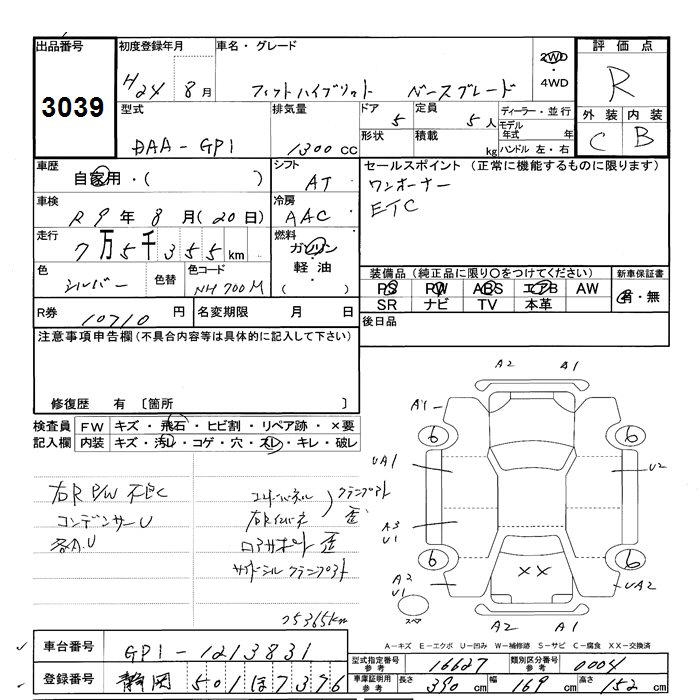 出品番号 初度登録年月 車名・グレード 評価点
3039 H24 8月 フィットハイブリット ベースグレード 2WD・4WD R
型式 排気量 ドア 定員 ディーラー・並行 外装 内装
DAA-GP1 1300cc 5 5人 モデル年式 年 C B
形状 積載 kg ハンドル 左・右
車歴 自家用・( ) シフト AT
セールスポイント (正常に機能するものに限ります)
ワンオーナー
ETC
車検 R9年8月(20日) 冷房 AAC
走行 7万5千355km 燃料 ガソリン・軽油・( )
色 シルバー 色替 色コード NH700M
装備品(純正品に限り○をつけてください) 新車保証書
PS PW ABS エアB AW 有・無
SR ナビ TV 本革
R券 10710円 名変期限 月 日 後日品
注意事項申告欄(不具合内容等は具体的に記入して下さい)
修復歴 有 〔箇所 〕
検査員 FW キズ・飛石・ヒビ割・リペア跡・×要
記入欄 内装 キズ・汚レ・コゲ・穴・スレ・キレ・破レ
右R P/W 不良
コンデンサーU
各小U
コアサポート 歪
サイドシル クランプアト
クランプアト
歪
75365km
A2 A1
A1
6 6
UA1 U2
A3
U1
6 6
XX
A2
U1
UA2
スペア
A2 A1
A-キズ E-エクボ U-凹み W-補修跡 S-サビ C-腐食 XX-交換済
車台番号 GP1-1213831
型式指定番号 参考 16627 類別区分番号 参考 0004
登録番号 静岡 501ほ7376
車庫証明用 参考 長さ 390cm 幅 169cm 高さ 152cm